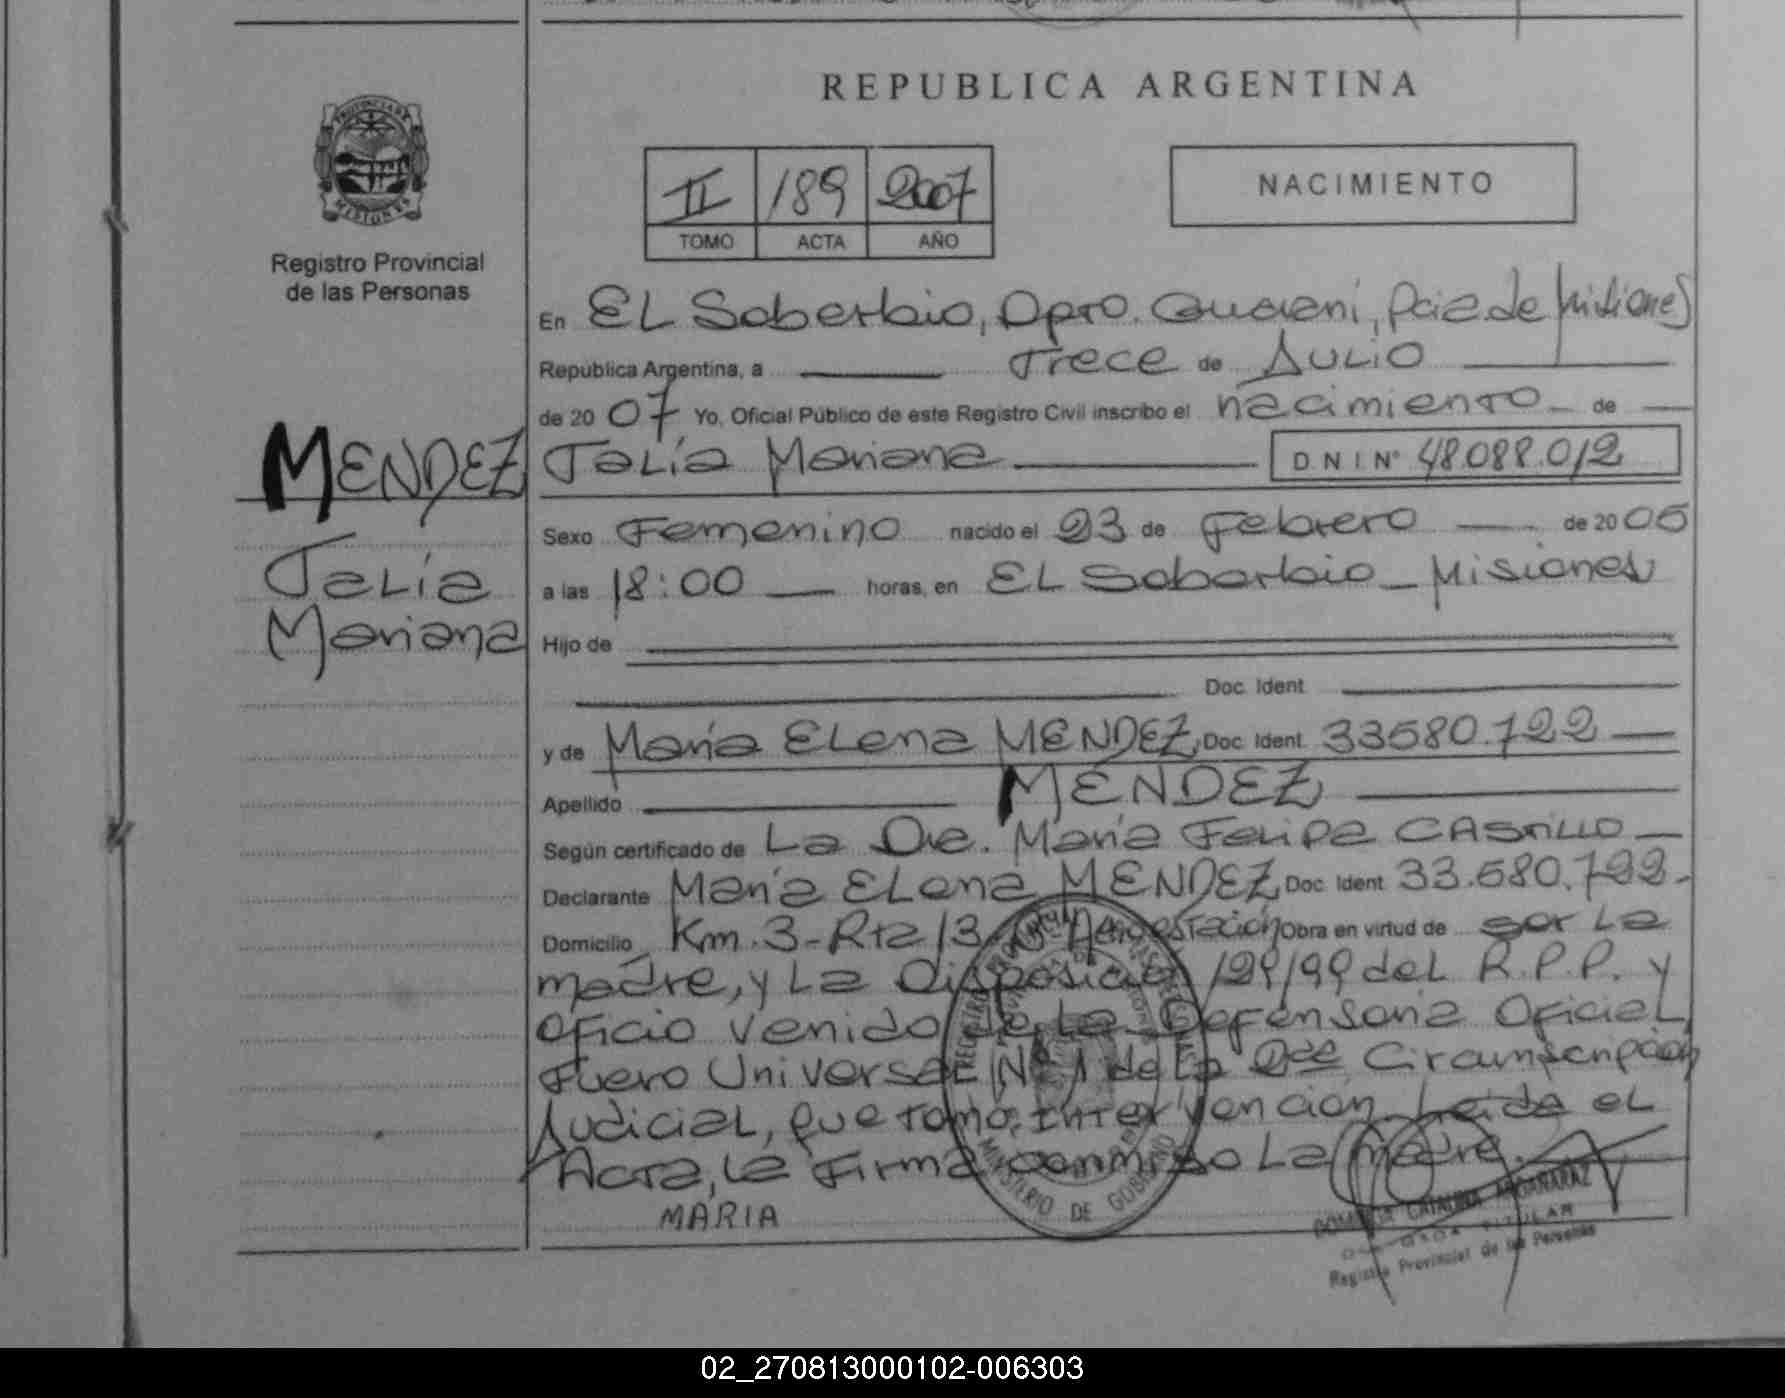 REPUBLICA ARGENTINA
PROVINCIA DE
MISIONES
Registro Provincial
de las Personas
II 189 2007
TOMO ACTA AÑO
NACIMIENTO
En EL Soberbio, Dpto. Guarani, Pcia. de Misiones
República Argentina, a Trece de JULIO
de 20 07 Yo, Oficial Público de este Registro Civil inscribo el nacimiento de
MENDEZ
Talía
Mariana
Talía Mariana D N I Nº 48.088.012
Sexo Femenino nacido el 23 de Febrero de 20
a las 18:00 horas, en EL Soberbio - Misiones
Hijo de
Doc. Ident.
y de María ELena MENDEZ Doc. Ident. 33580.722
Apellido MENDEZ
Según certificado de La Dra. María Felipa CASTILLO
Declarante María ELena MENDEZ Doc. Ident. 33.580.722.
Domicilio Km. 3 - Rta 13 Obra en virtud de ser La
madre, y La Disposición 129/99 del R.P.P. y
oficio venido de La Defensoría Oficial,
Fuero Universal Nº 1 de La 2da Circunscripción
Judicial, que tomo intervención. Leida el
Acta, La Firma conmigo La madre.
MARIA
MINISTERIO DE GOBIERNO
CATALINA
TITULAR
Registro Provincial de las Personas
02_270813000102-006303